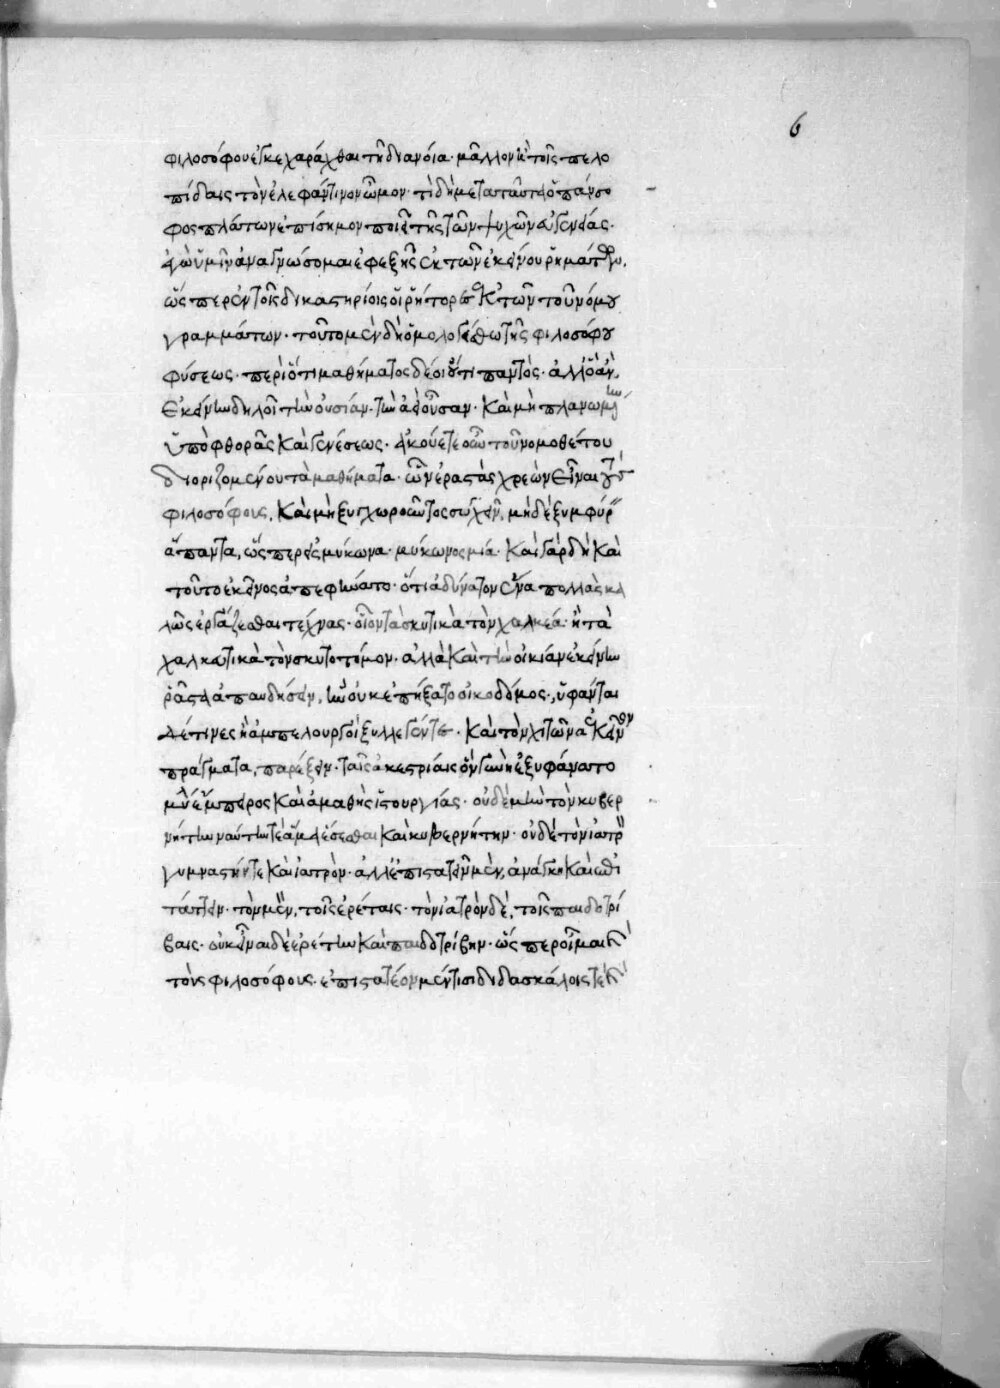 6
φιλοσόφου ἐγκεχαράχθαι τῆ διανοία· μᾶλλον ἢ τοῖς πελο
πίδαις τὸν ἐλεφάντινον ὦμον· τί δὴ μετὰ ταῦτα ὁ πάνσο
φος πλάτων ἐπίσημον ποιεῖ τῆς τῶν ψυχῶν εὐγενείας·
ἐγὼ ὑμῖν ἀναγνώσομαι ἐφεξῆς ἐκ τῶν ἐκείνου ῥημάτων,
ὥσπερ ἐν τοῖς δικαστηρίοις οἱ ῥήτορες ἐκ τῶν τοῦ νόμου
γραμμάτων· τοῦτο μὲν δὴ ὁμολογείσθω τῆς φιλοσόφου
φύσεως· περὶ ὅτι μαθήματος δέοι
ἐκείνην δηλοῖ τὴν οὐσίαν· τὴν ἀεὶ οὖσαν· καὶ μὴ πλανωμένην
ὑπὸ φθορᾶς καὶ γενέσεως· ἀκούετε οὖν τοῦ νομοθέτου
διοριζομένου τὰ μαθήματα· ὧν ἐραστὰς χρεὼν εἶναι τοὺς
φιλοσόφους, καὶ μὴ ξυγχωροῦντος συγχεῖν, μηδὲ ξυμφύρειν
ἅπαντα, ὥσπερ ἐς μύκωνα· μύκωνος μιά· καὶ γὰρ δὴ καὶ
τοῦτο ἐκεῖνος ἀπεφήνατο· ὅτι ἀδύνατον ἕνα πολλὰς κα
λῶς ἐργάζεσθαι τέχνας· οἷον τὰ σκυτικὰ τὸν χαλκέα· ἢ τὰ
χαλκευτικὰ τὸν σκυτοτόμον· ἀλλὰ καὶ τὴν οἰκίαν ἐκείνην
ῥᾶστα ἀπαυδήσειν, ἣν οὐκ ἐπήξατο οἰκοδόμος, ὑφάνται
δέ τινες ἢ ἀμπελουργοὶ ξυλλεγέντες· καὶ τὸν χιτῶνα ἐκεῖνον
πράγματα, παρέξειν· ταῖς ἀκεστρίαις ὃν γυνὴ ἐξυφάνατο
μὴ ἔμπειρος καὶ ἀμαθὴς ἱστουργίας· οὐδὲ μὴν τὸν κυβερ
νήτην ναύτην τε ἅμα ἔσεσθαι καὶ κυβερνήτην· οὐδὲ τὸν ἰατρὸν
γυμναστήν τε καὶ ἰατρὸν· ἀλλ' ἐπιστατεῖν μὲν, ἀνάγκη καὶ ἐπι
τάττειν· τὸν μὲν, τοῖς ἐρέταις· τὸν ἰατρὸν δὲ, τοῖς παιδοτρί
βαις· οὐκ εἶναι δὲ ἐρέτην καὶ παιδοτρίβην· ὥσπερ οἶμαι καὶ
τοὺς φιλοσόφους· ἐπιστατέον μέν τισι διδασκάλοις τε καὶ